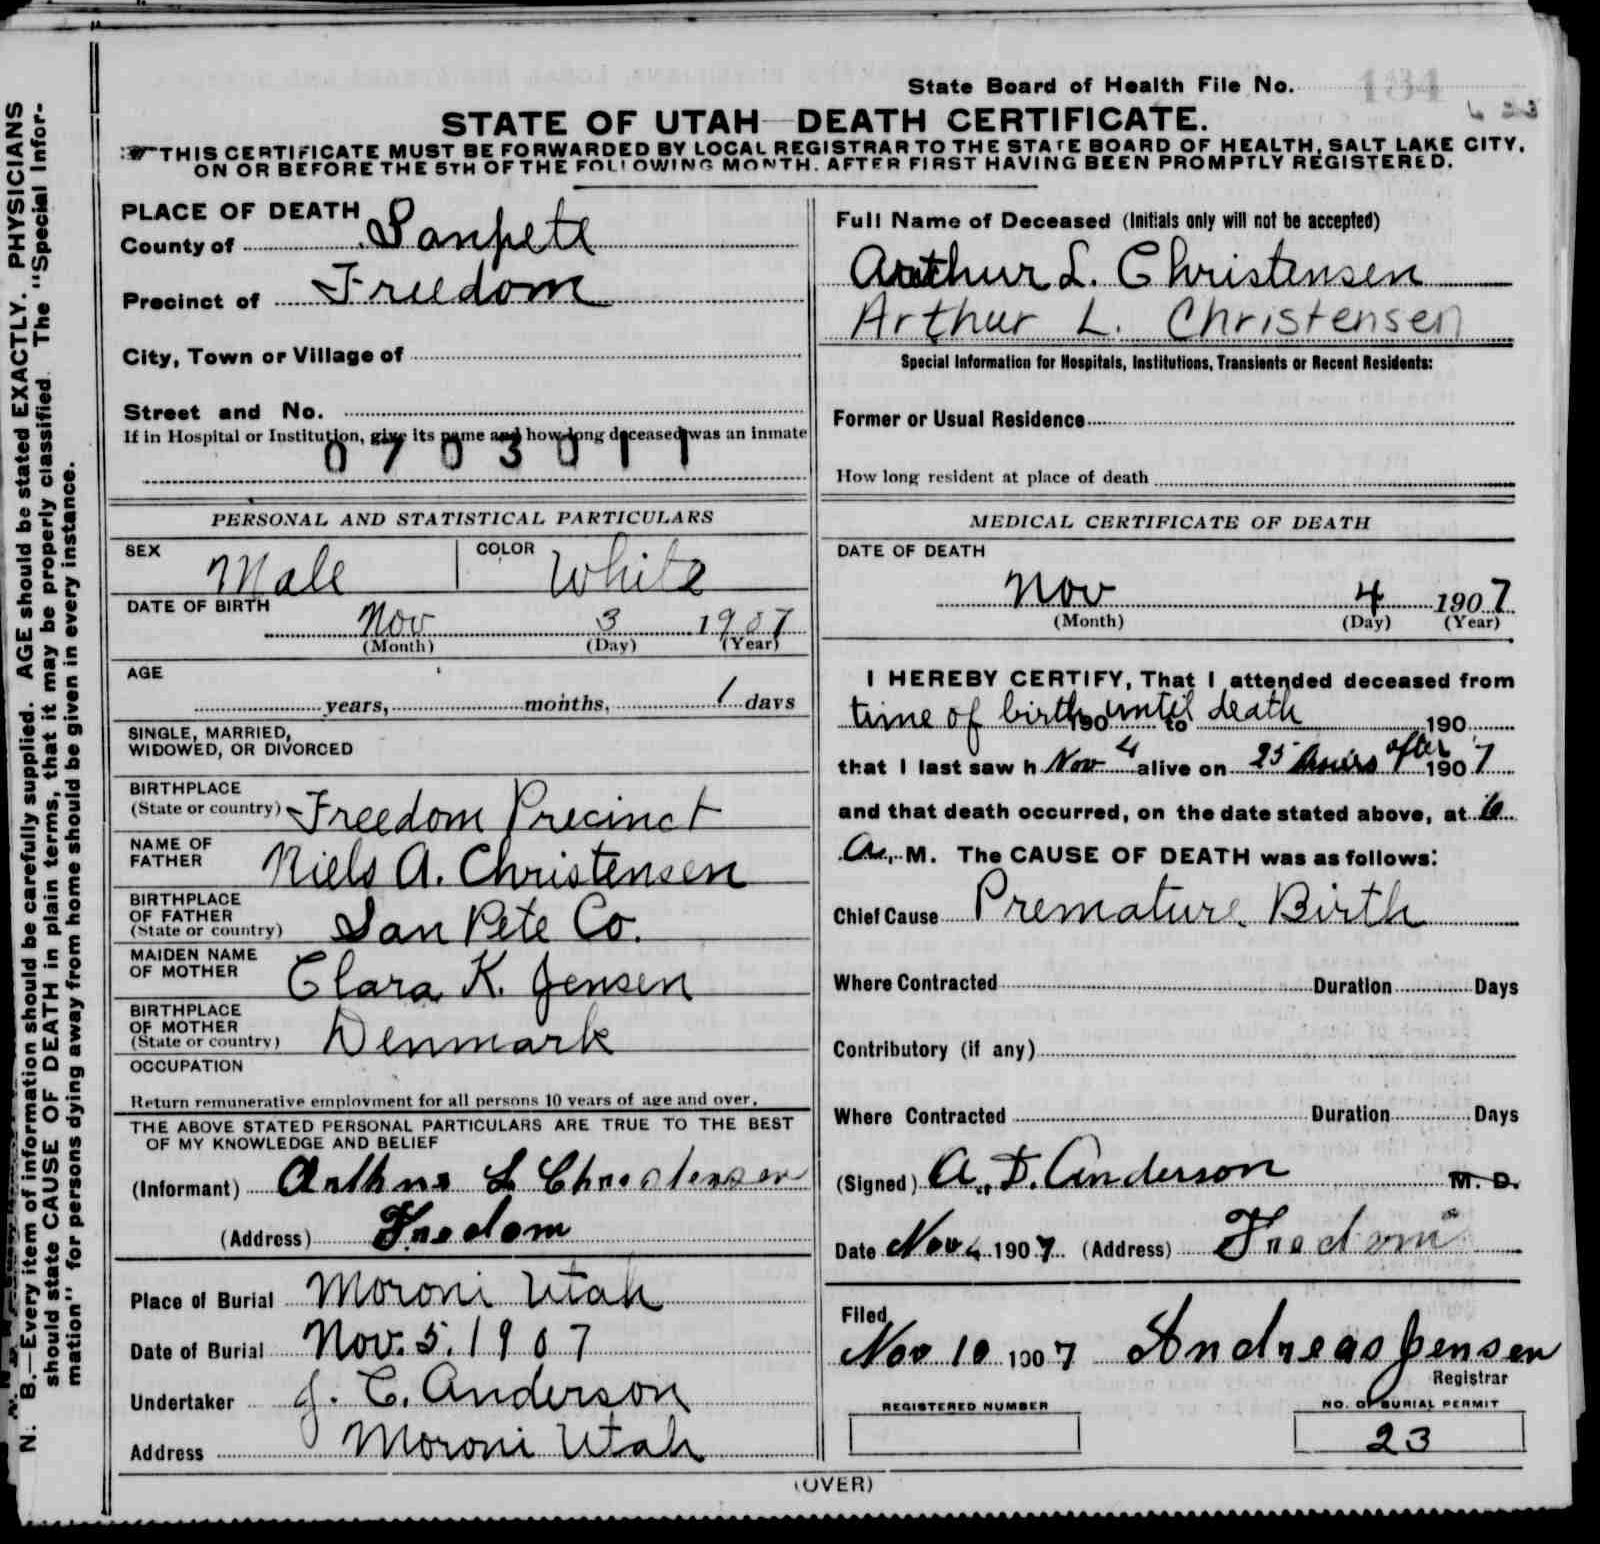 State Board of Health File No. 134
STATE OF UTAH—DEATH CERTIFICATE.
THIS CERTIFICATE MUST BE FORWARDED BY LOCAL REGISTRAR TO THE STATE BOARD OF HEALTH, SALT LAKE CITY,
ON OR BEFORE THE 5TH OF THE FOLLOWING MONTH, AFTER FIRST HAVING BEEN PROMPTLY REGISTERED.
PLACE OF DEATH
County of Sanpete
Precinct of Freedom
City, Town or Village of
Street and No.
If in Hospital or Institution, give its name and how long deceased was an inmate
0703011
PERSONAL AND STATISTICAL PARTICULARS
SEX Male COLOR White
DATE OF BIRTH
Nov 3 1907
(Month) (Day) (Year)
AGE
years, months, 1 days
SINGLE, MARRIED,
WIDOWED, OR DIVORCED
BIRTHPLACE
(State or country) Freedom Precinct
NAME OF
FATHER Niels A. Christensen
BIRTHPLACE
OF FATHER
(State or country) San Pete Co.
MAIDEN NAME
OF MOTHER Clara K. Jensen
BIRTHPLACE
OF MOTHER
(State or country) Denmark
OCCUPATION
Return remunerative employment for all persons 10 years of age and over.
THE ABOVE STATED PERSONAL PARTICULARS ARE TRUE TO THE BEST
OF MY KNOWLEDGE AND BELIEF
(Informant) Arthur L Christensen
(Address) Freedom
Place of Burial Moroni Utah
Date of Burial Nov. 5. 1907
Undertaker J. C. Anderson
Address Moroni Utah
Full Name of Deceased (Initials only will not be accepted)
Arthur L. Christensen
Arthur L. Christensen
Special Information for Hospitals, Institutions, Transients or Recent Residents:
Former or Usual Residence
How long resident at place of death
MEDICAL CERTIFICATE OF DEATH
DATE OF DEATH
Nov 4 1907
(Month) (Day) (Year)
I HEREBY CERTIFY, That I attended deceased from
time of birth 190 until to death 190
that I last saw h Nov 4 alive on 25 hours after 1907
and that death occurred, on the date stated above, at 6
A. M. The CAUSE OF DEATH was as follows:
Chief Cause Premature Birth
Where Contracted Duration Days
Contributory (if any)
Where Contracted Duration Days
(Signed) A. D. Anderson M. D.
Date Nov 4 1907 (Address) Freedom
Filed
Nov 10 1907 Andreas Jensen
Registrar
REGISTERED NUMBER
NO. OF BURIAL PERMIT
23
(OVER)
N. B.—Every item of information should be carefully supplied. AGE should be stated EXACTLY. PHYSICIANS
should state CAUSE OF DEATH in plain terms, that it may be properly classified. The "Special Infor-
mation" for persons dying away from home should be given in every instance.